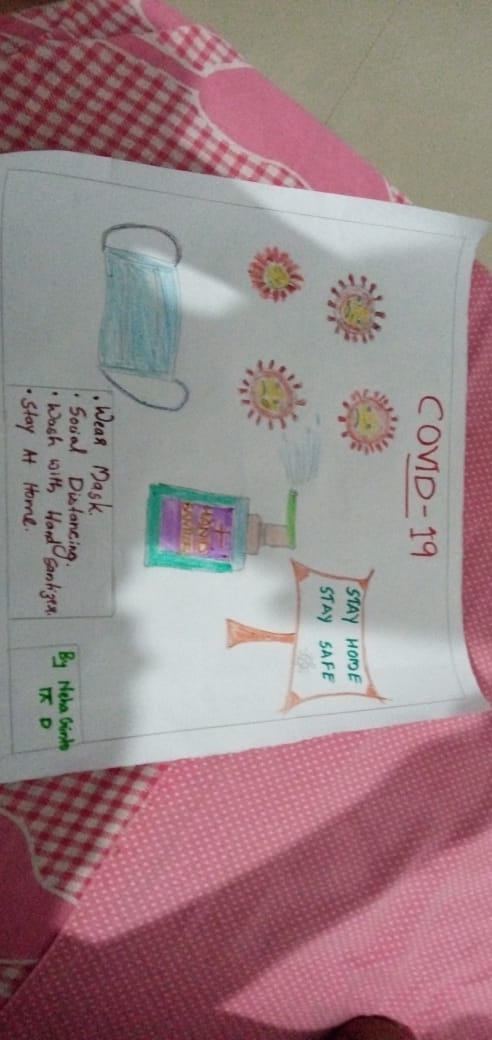 COVID-19
STAY HOME
STAY SAFE
HAND
• Wear Mask.
• Social Distancing.
• Wash with Hand Sanitizer.
• Stay At Home.
By Neha
IX D